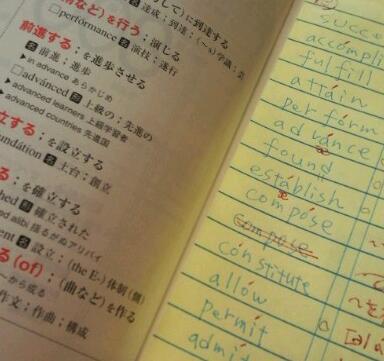 など)を行う:演じる
達成;到達;(〜の)学識;芸
して)に到達する
□perfórmance 名 演技;遂行
前進する:を進歩させる
名 前進;進歩
▶in advance あらかじめ
□advánced 形 上級の;先進の
▶advanced learners 上級学習者
▶advanced countries 先進国
立する:を設立する
oundátion 名 土台;創立
る:を確立する
hed 形 確立された
ed alibi 揺るがぬアリバイ
ent 名 設立;(the E-)体制(側)
る(of):(曲など)を作る
から成る
作文;作曲;構成
succe
accompli
fulfill
attáin
perfórm
advánce
found
estáblish
compóse
compose
cónstitute
allów
permít
admít